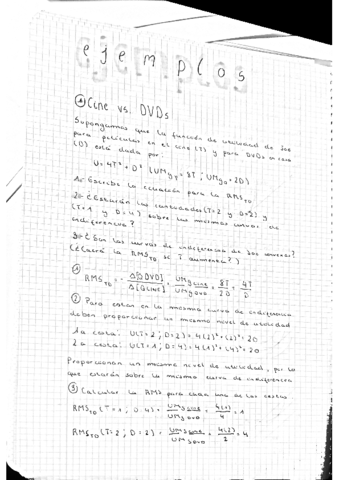 ejemplos
① Cine vs. DVDs
Supongamos que la función de utilidad de Jose
para películas en el cine (T) y para DVDs en casa
(D) está dada por:
U = 4T² + D² (UMgT = 8T ; UMgD = 2D)
1. Escribe la ecuación para la RMSTD
2. ¿Estarían las cantidades (T=2 y D=2) y
(T=1 y D=4) sobre las mismas curvas de
indiferencia?
3. ¿Son las curvas de indiferencia de Jose convexas?
(¿Caerá la RMSTD si T aumenta?)
① RMSTD = - Δ[DVD] / Δ[QCINE] = UMgCINE / UMgDVD = 8T / 2D = 4T / D
② Para estar en la misma curva de indiferencia
deben proporcionar un mismo nivel de utilidad
1a cesta: U(T=2; D=2) = 4(2)² + (2)² = 20
2a cesta: U(T=1; D=4) = 4(1)² + (4)² = 20
Proporcionan un mismo nivel de utilidad, por lo
que estarán sobre la misma curva de indiferencia
③ Calcular la RMS para cada una de las cestas
RMSTD (T=1; D=4) = UMgCINE / UMgDVD = 4(1) / 4 = 1
RMSTD (T=2; D=2) = UMgCINE / UMgDVD = 4(2) / 2 = 4